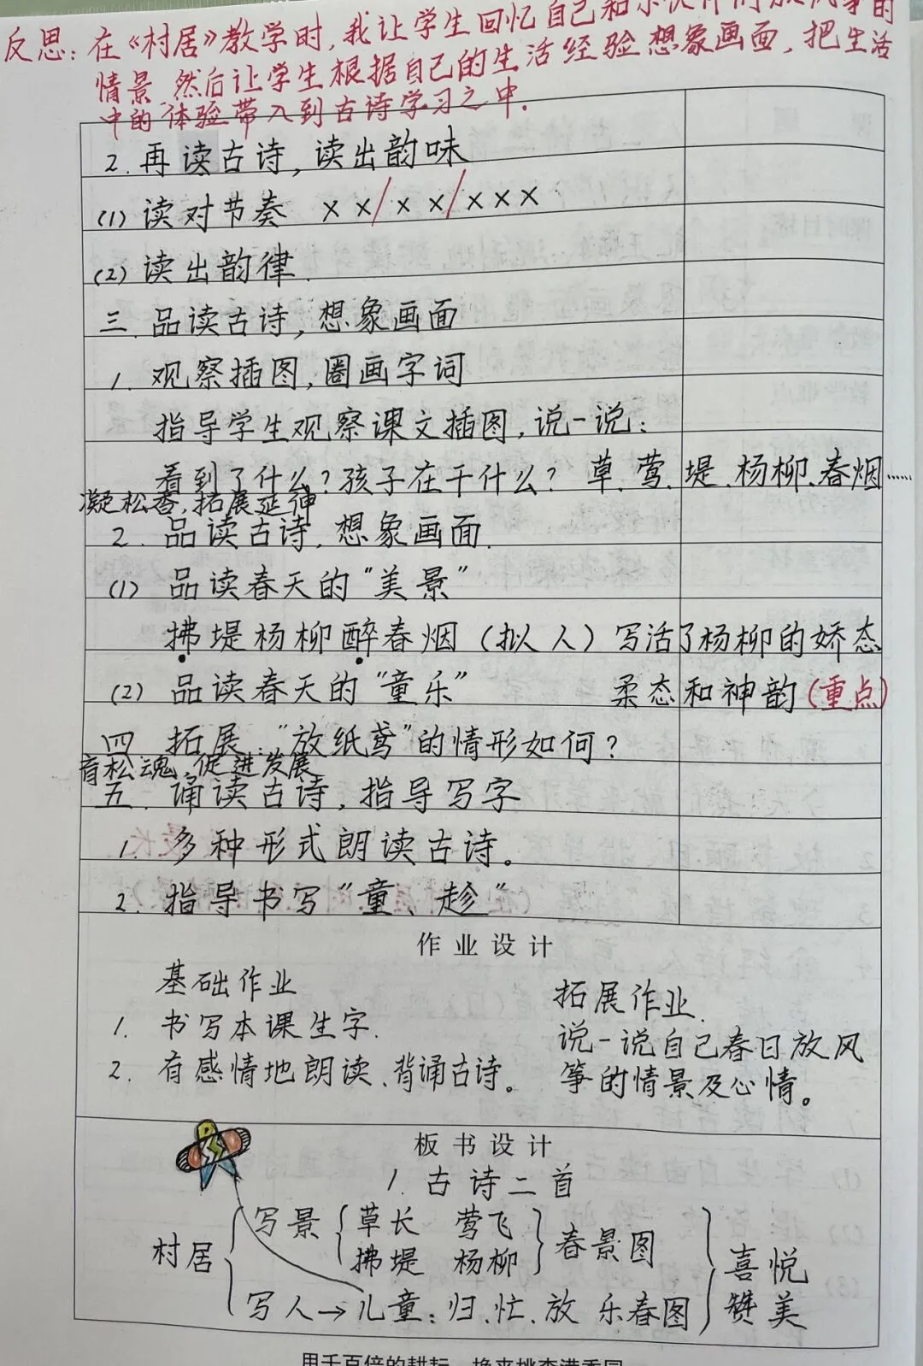 反思：在《村居》教学时，我让学生回忆自己和小伙伴们放风筝的
情景.然后让学生根据自己的生活经验想象画面，把生活
中的体验带入到古诗学习之中.
2.再读古诗，读出韵味
(1)读对节奏 ××/××/×××
(2)读出韵律.
三.品读古诗，想象画面
1.观察插图，圈画字词
指导学生观察课文插图，说一说：
看到了什么？孩子在干什么？草、莺、堤、杨柳、春烟……
凝松香，拓展延伸
2.品读古诗，想象画面.
(1)品读春天的“美景”
拂堤杨柳醉春烟（拟人）写活了杨柳的娇态
(2)品读春天的“童乐” 柔态和神韵(重点)
四.拓展：“放纸鸢”的情形如何？
育松魂，促进发展
五.诵读古诗，指导写字
1.多种形式朗读古诗。
2.指导书写“童、趁”
作业设计
基础作业 拓展作业.
1.书写本课生字. 说一说自己春日放风
2.有感情地朗读、背诵古诗。 筝的情景及心情。
板书设计
1.古诗二首
写景 草长 莺飞
村居 拂堤 杨柳 春景图 喜悦
写人→儿童：归、忙、放 乐春图 赞美